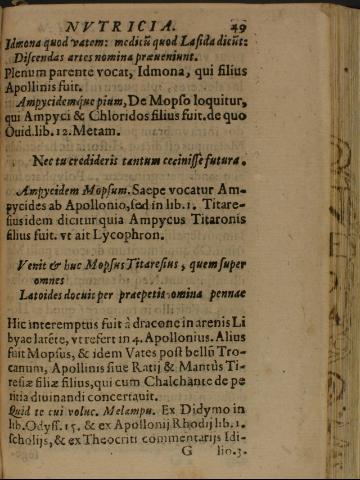 NVTRICIA. 49
Idmona quod vatem: medicũ quod Lasida dicũt:
Discendas artes nomina præueniunt.
Plenum parente vocat, Idmona, qui filius
Apollinis fuit.
Ampycidemque pium, De Mopso loquitur,
qui Ampyci & Chloridos filius fuit. de quo
Ouid. lib. 12. Metam.
Nec tu credideris tantum cecinisse futura.
Ampycidem Mopsum. Saepe vocatur Am-
pycides ab Apollonio, sed in lib. 1. Titare-
sius idem dicitur quia Ampycus Titaronis
filius fuit. vt ait Lycophron.
Venit & huc Mopsus Titaresius, quem super
omnes
Latoides docuit per praepetis omina pennae
Hic interemptus fuit à dracone in arenis Li
byae latẽte, vt refert in 4. Apollonius. Alius
fuit Mopsus, & idem Vates post bellũ Tro-
canum, Apollinis siue Ratij & Mantûs Ti-
resiæ filiæ filius, qui cum Chalchante de pe
ritia diuinandi concertauit.
Quid te cui voluc. Melampu. Ex Didymo in
lib. Odyss. 15. & ex Apollonij Rhodij lib. 1.
scholijs, & ex Theocriti commentarijs Idi-
G lio. 3.